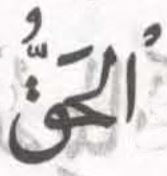 اْلحَقُّ